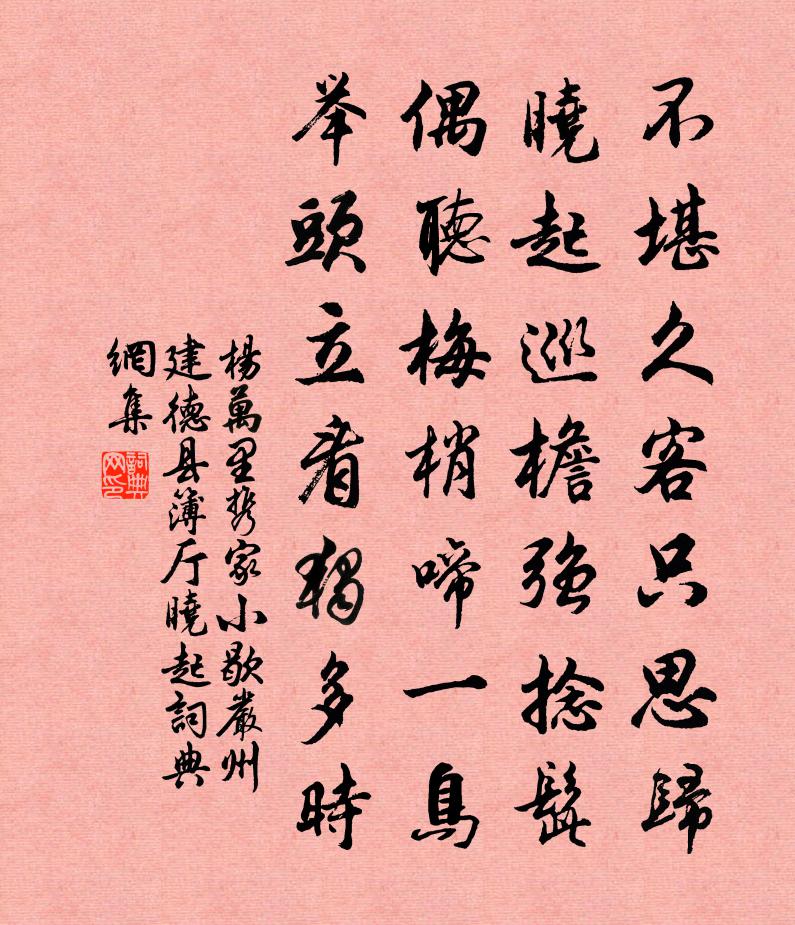 不堪久客只思歸
曉起巡檐強捻髭
偶聽梅梢啼一鳥
举頭立看独多時
楊萬里携家小歇嚴州
建德县簿厅曉起詞典
網集
詞典
网印